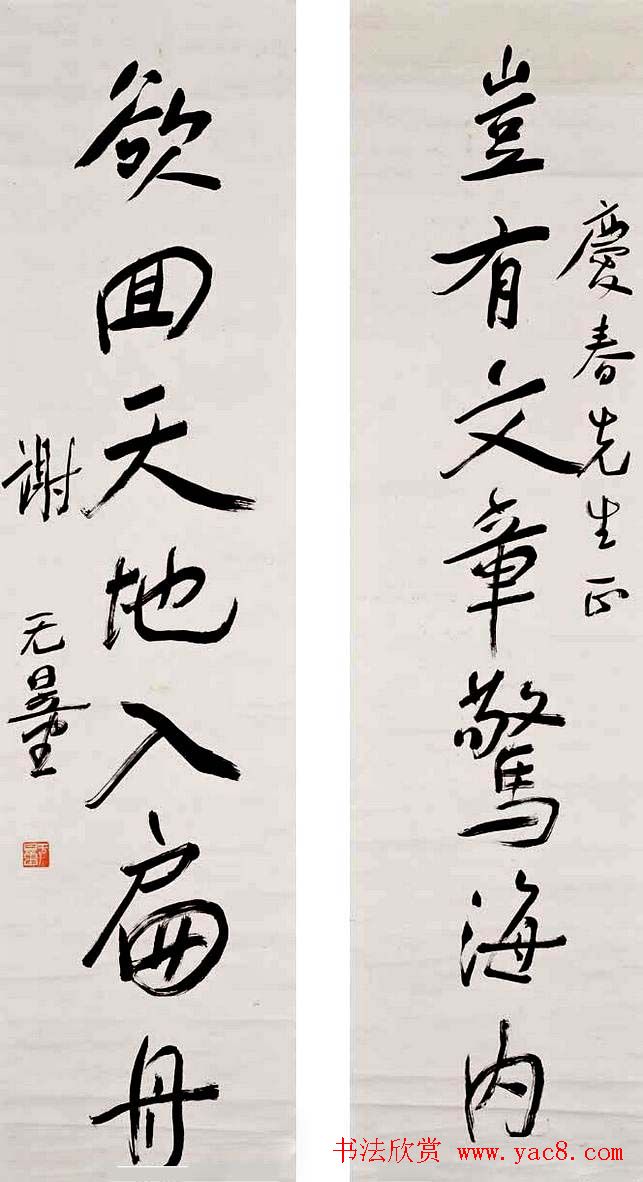 慶春先生正
豈有文章驚海内
欲回天地入扁舟
謝无量
无量
书法欣赏 www.yac8.com